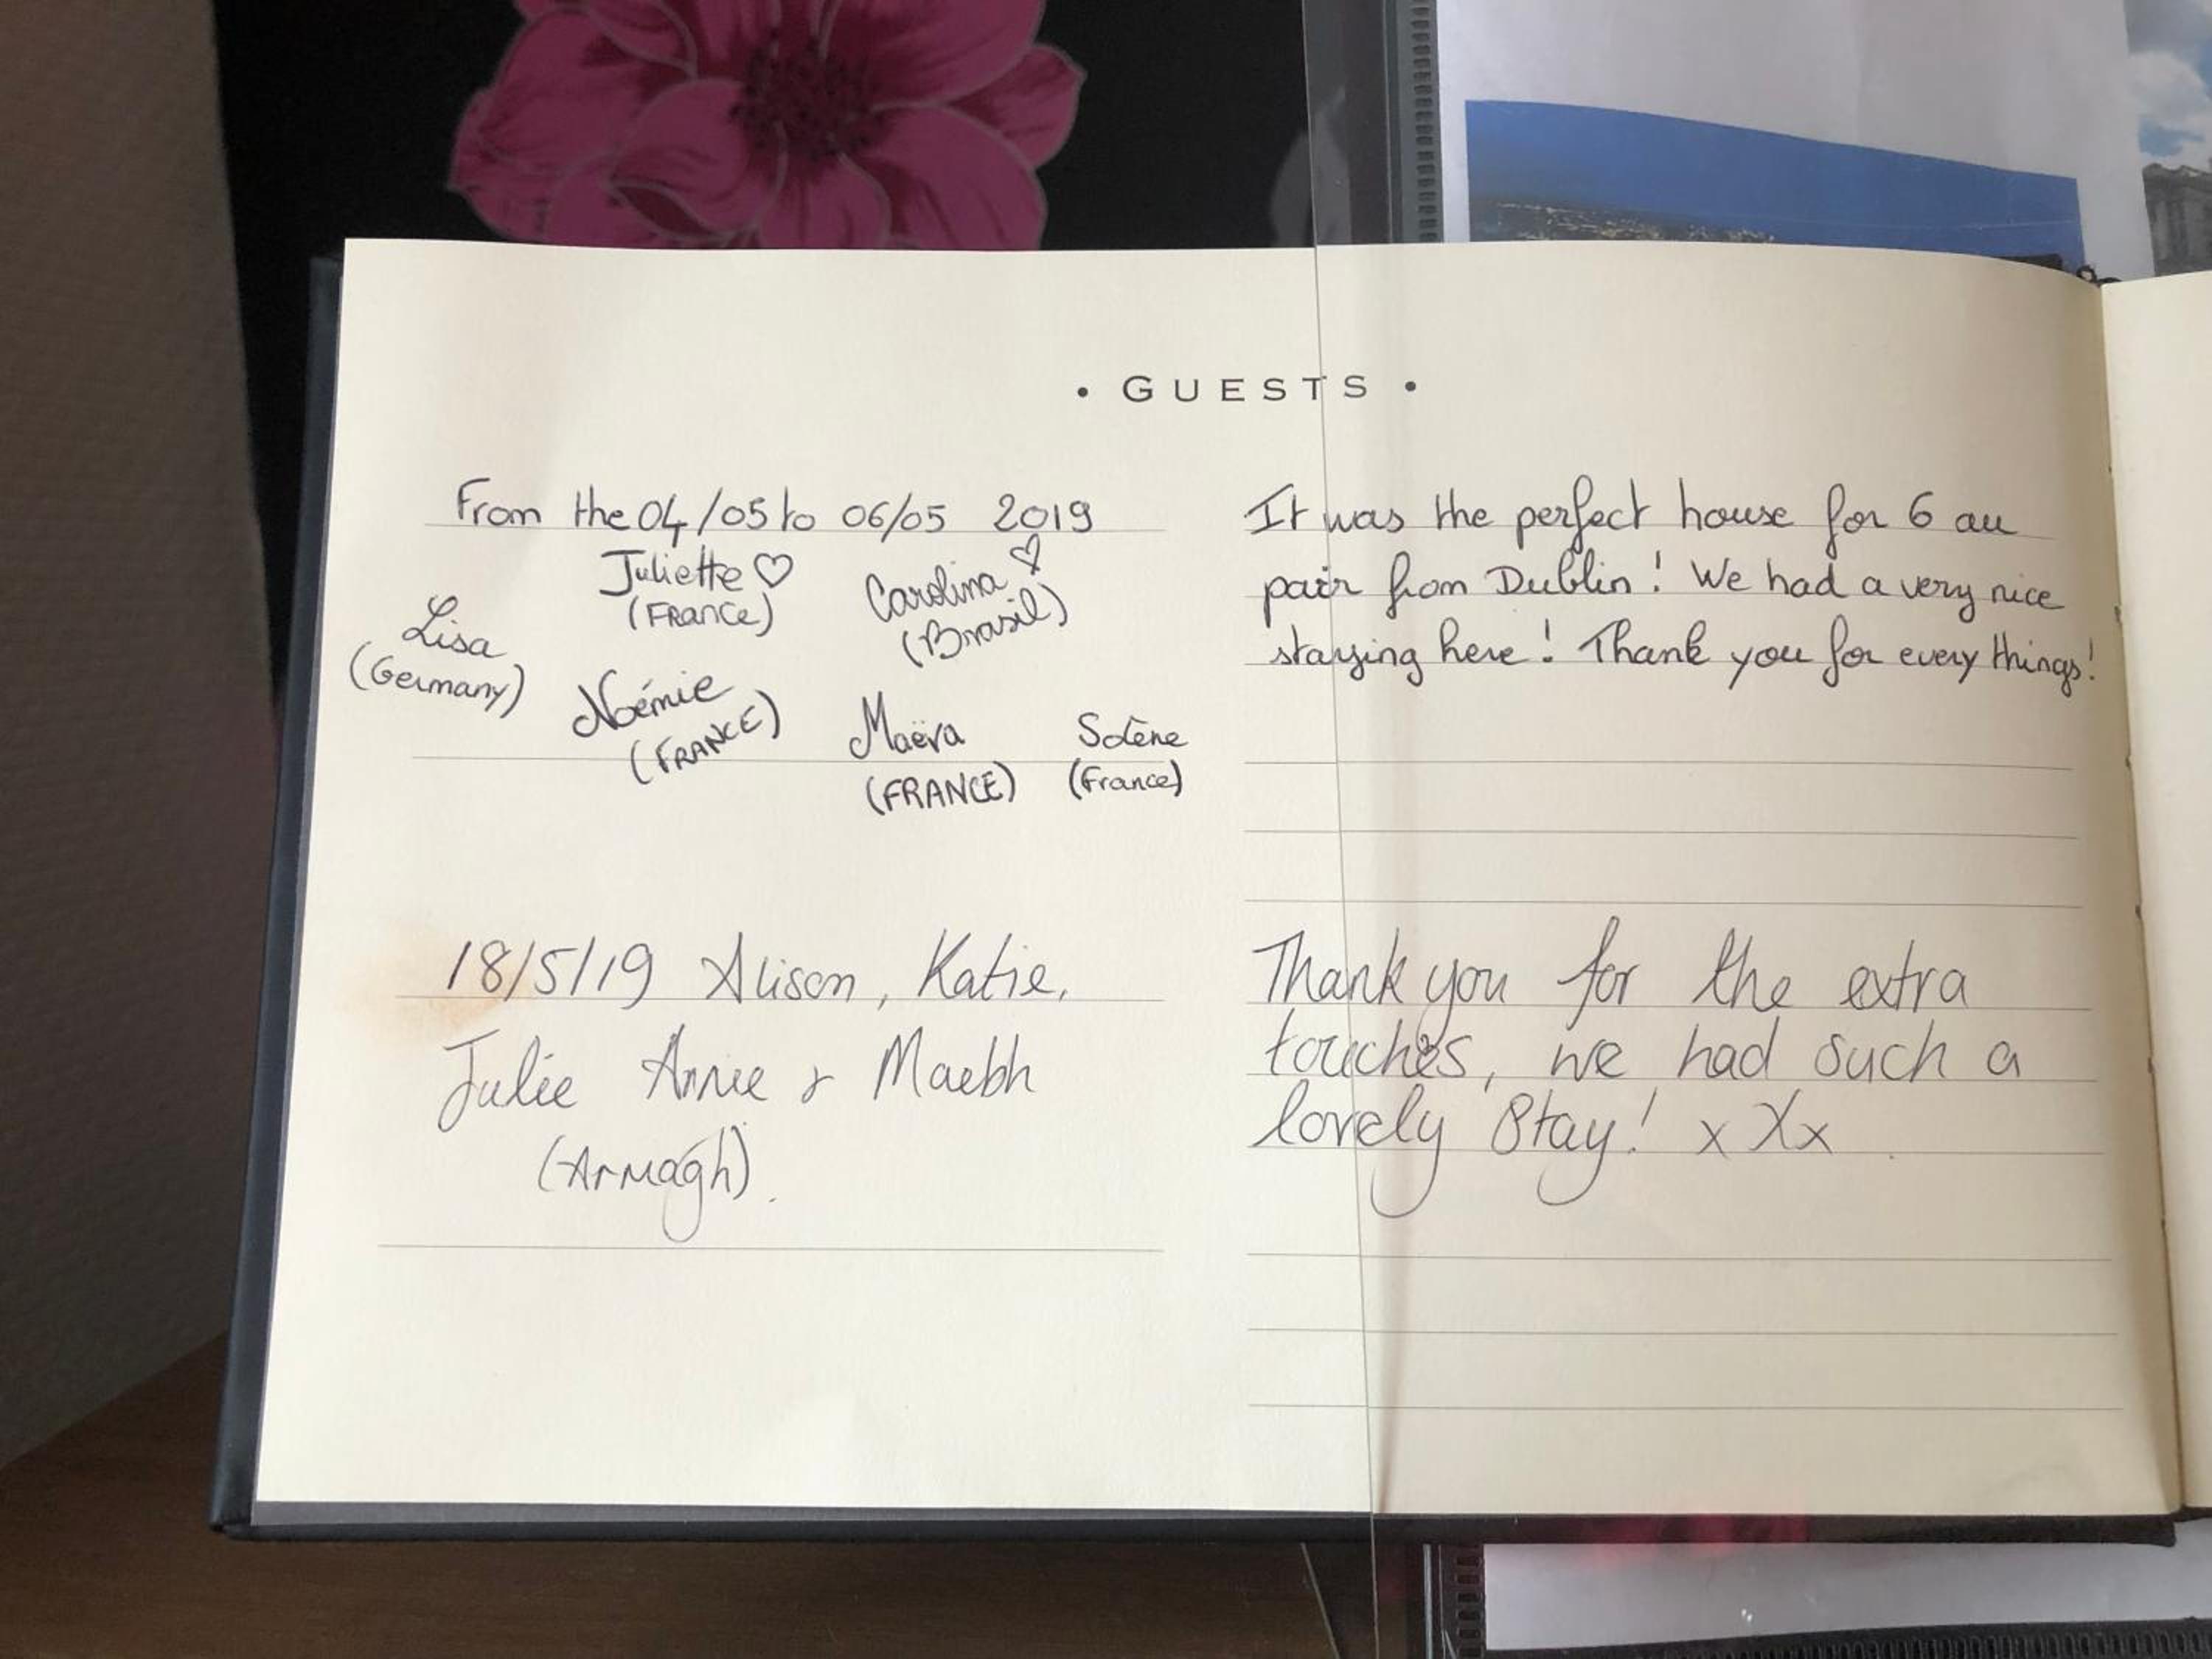 • GUESTS •
From the 04/05 to 06/05 2019
Juliette ♡
(FRANCE)
Carolina ♡
(Brasil)
Lisa
(Germany)
Noémie
(FRANCE)
Maëva
(FRANCE)
Solène
(France)
It was the perfect house for 6 au
pair from Dublin! We had a very nice
staying here! Thank you for every things!
18/5/19 Alison, Katie,
Julie Annie & Maebh
(Armagh).
Thank you for the extra
touches, we had such a
lovely Stay! x Xx